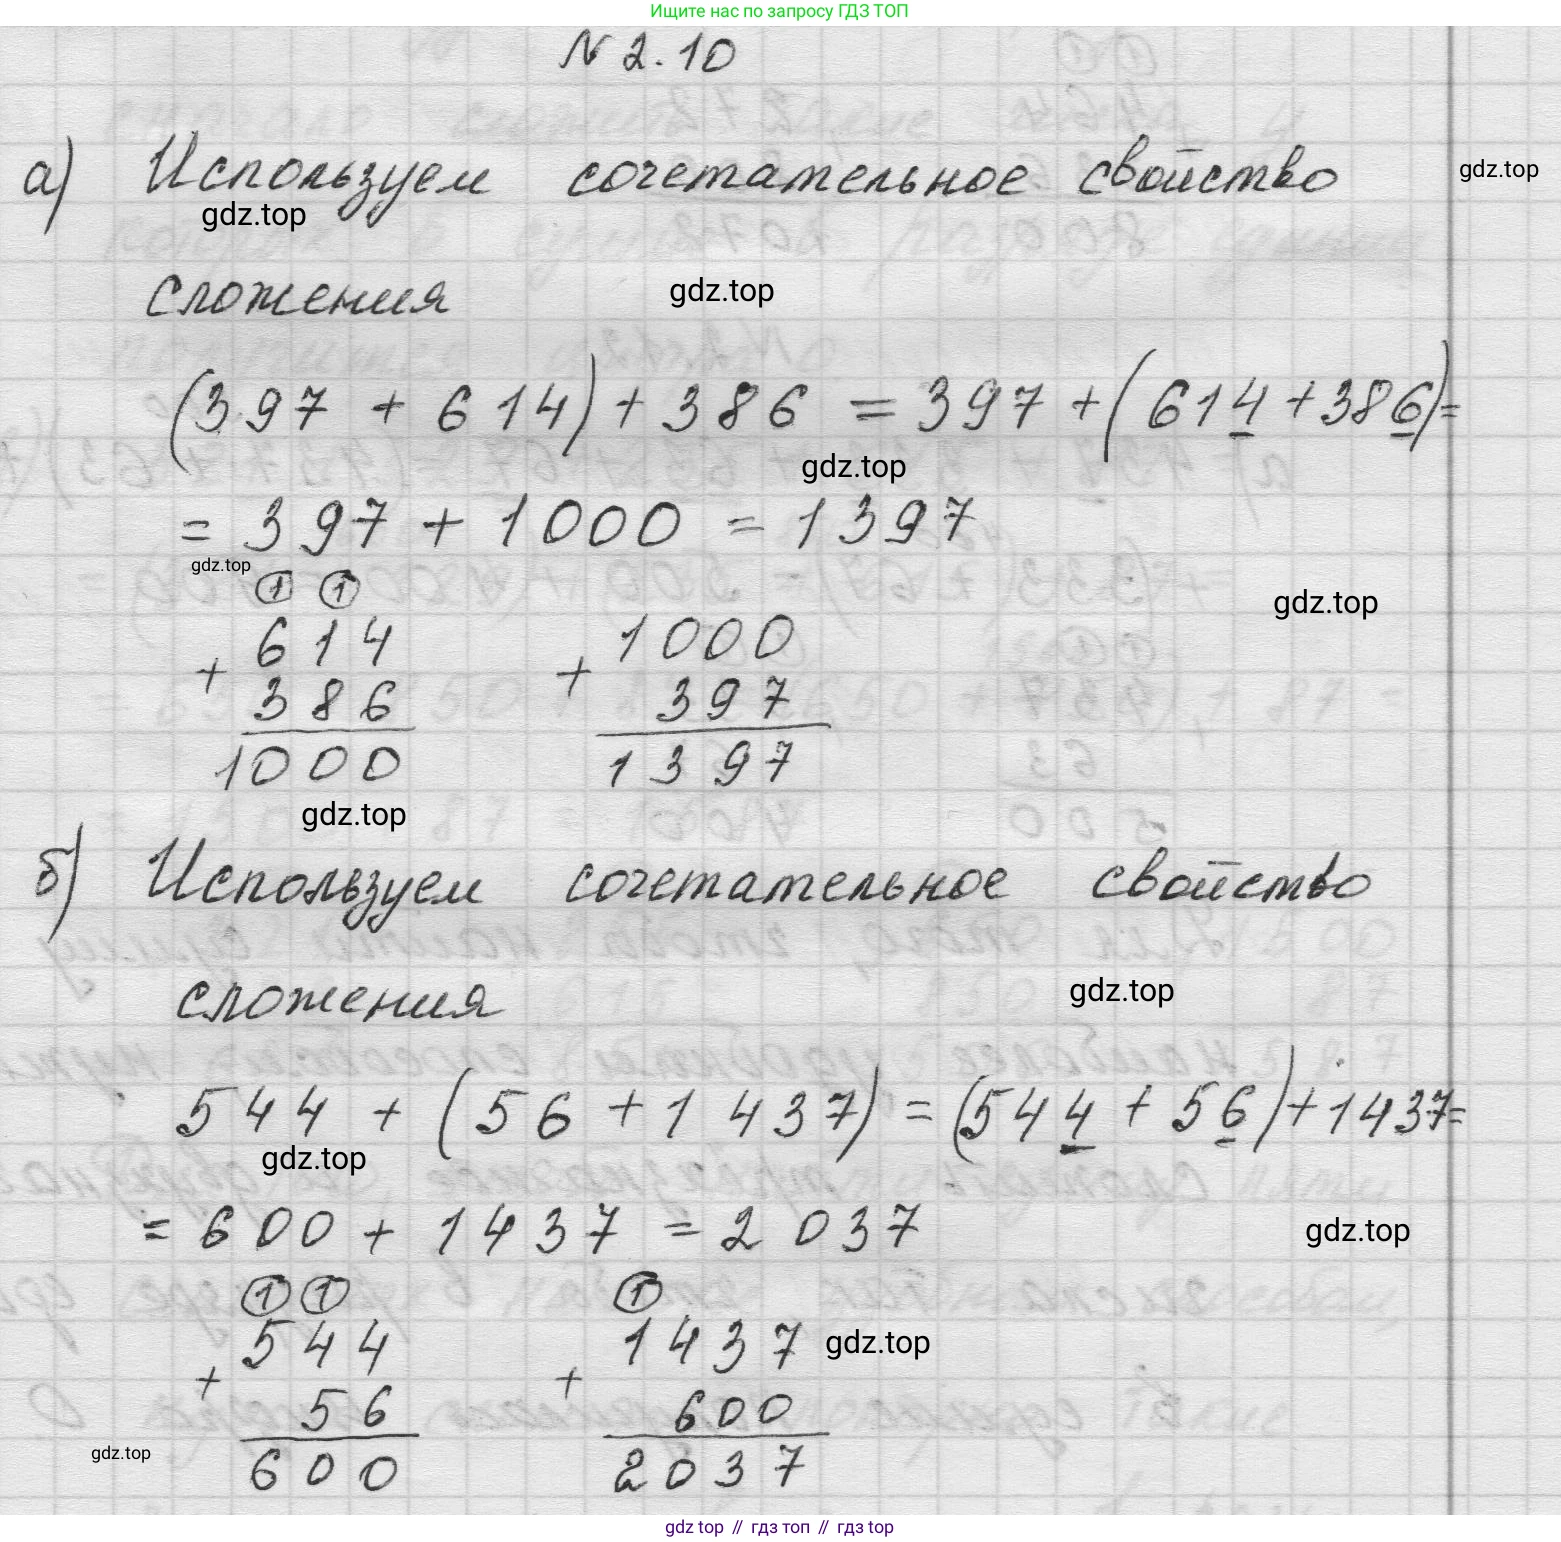 Ищите нас по запросу ГДЗ ТОП
N 2.10
а) Используем сочетательное свойство
gdz.top
gdz.top
сложения
gdz.top
(397 + 614) + 386 = 397 + (614 + 386) =
gdz.top
= 397 + 1000 = 1397
gdz.top
1 1
gdz.top
614 1000
+ +
386 397
1000 1397
gdz.top
б) Используем сочетательное свойство
сложения
gdz.top
544 + (56 + 1 437) = (544 + 56) + 1437 =
gdz.top
= 600 + 1437 = 2 037
gdz.top
1 1 1
544 1437
gdz.top
+ +
56 600
gdz.top
600 2037
gdz top // гдз топ // гдз top